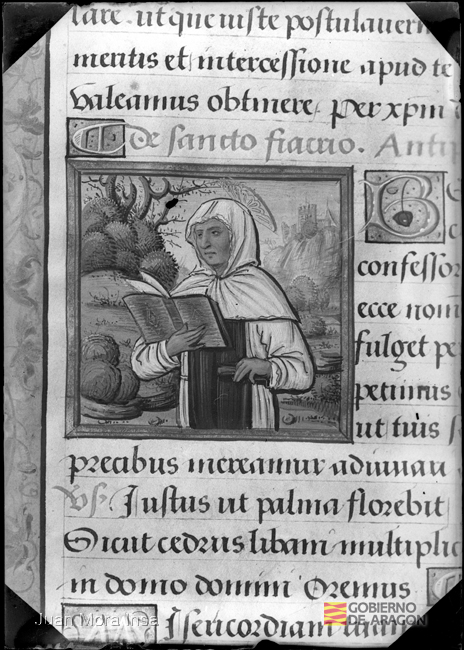 tare. ut que iuste postulaver
mentis et intercessione apud te
valeamus obtinere. per xpm
De sancto fiacrio. Antip
B
confessor
ecce nom
fulget pe
petimus
ut tuis s
precibus mereamur adiuuari
Vs. Justus ut palma florebit
Sicut cedrus libani multiplic
in domo domini Oremus
Misericordiam tuam
Juan Mora Insa
GOBIERNO
DE ARAGON